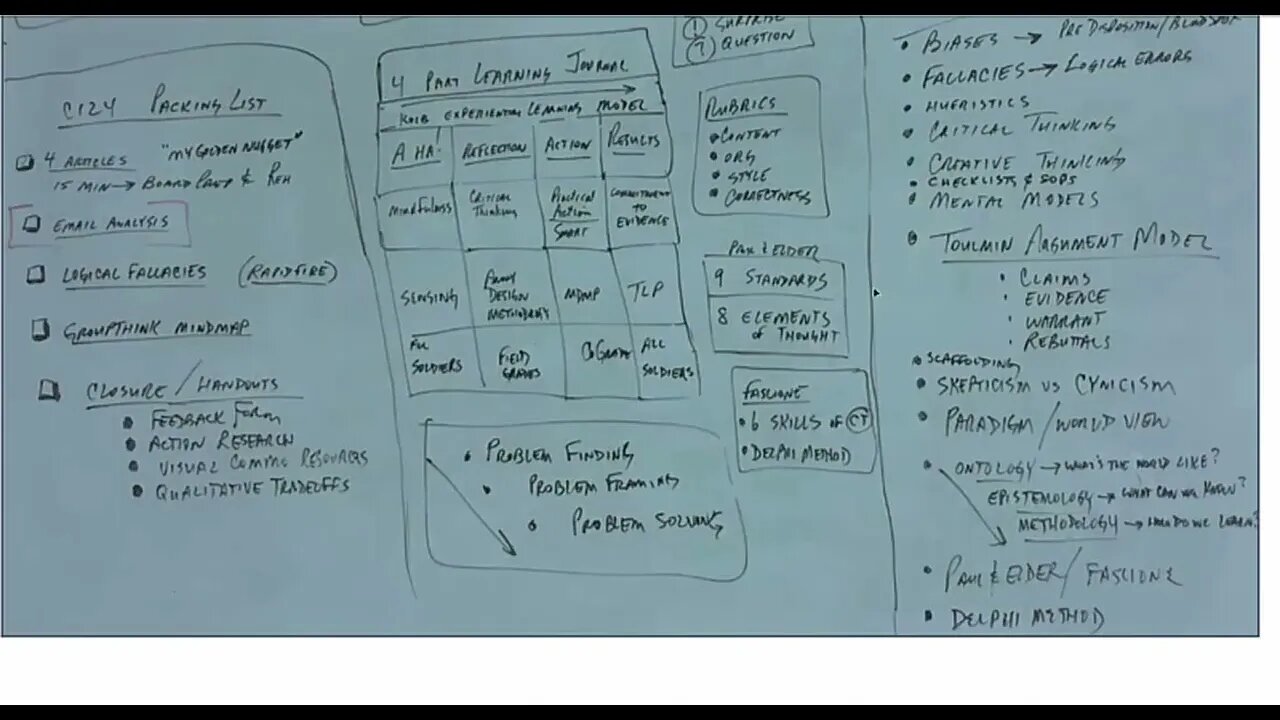 C124 PACKING LIST
4 ARTICLES "MY GOLDEN NUGGET"
15 MIN → BOARD &
EMAIL ANALYSIS
LOGICAL FALLACIES (RAPIDFIRE)
GROUPTHINK MINDMAP
CLOSURE / HANDOUTS
• FEEDBACK FORM
• ACTION RESEARCH
• VISUAL RESOURCES
• QUALITATIVE TRADEOFFS
4 PART LEARNING JOURNAL
KOLB EXPERIENTIAL LEARNING MODEL
A HA! REFLECTION ACTION RESULTS
MINDFULNESS CRITICAL THINKING PRACTICAL ACTION SMART COMMITMENT TO EVIDENCE
SENSING ARMY DESIGN METHODOLOGY MDMP TLP
SOLDIERS FIELD GRADES COGRADE ALL SOLDIERS
• PROBLEM FINDING
• PROBLEM FRAMING
• PROBLEM SOLVING
① SURPRISE
? QUESTION
RUBRICS
• CONTENT
• ORG
• STYLE
• CORRECTNESS
PAUL & ELDER
9 STANDARDS
8 ELEMENTS
OF THOUGHT
FASCIONE
• 6 SKILLS OF CT
• DELPHI METHOD
• BIASES → PREDISPOSITION/BLINDSPOT
• FALLACIES → LOGICAL ERRORS
• HUERISTICS
• CRITICAL THINKING
• CREATIVE THINKING
• CHECKLISTS & SOPS
• MENTAL MODELS
• TOULMIN ARGUMENT MODEL
• CLAIMS
• EVIDENCE
• WARRANT
• REBUTTALS
• SCAFFOLDING
• SKEPTICISM VS CYNICISM
• PARADIGM / WORLD VIEW
• ONTOLOGY → WHAT'S THE WORLD LIKE?
EPISTEMOLOGY → WHAT CAN WE KNOW?
METHODOLOGY → HOW DO WE LEARN?
• PAUL & ELDER / FASCIONE
• DELPHI METHOD